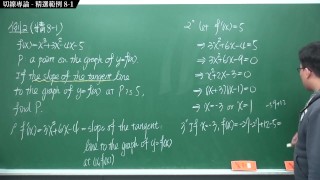 切線專論 - 精選範例 8-1
f(x)=x³+3x²-4x-5
P: a point on the graph of y=f(x)
If the slope of the tangent line
to the graph of y=f(x) at P is 5,
find P.
1° f'(x)=3x²+6x-4 = slope of the tangent
line to the graph of y=f(x)
at (x, f(x))
2° Let f'(x)=5
⇒ 3x²+6x-4=5
⇒ 3x²+6x-9=0
⇒ x²+2x-3=0
⇒ (x+3)(x-1)=0
⇒ x=-3 or x=1
3° If x=-3, f(x)=-27+27+12-5=